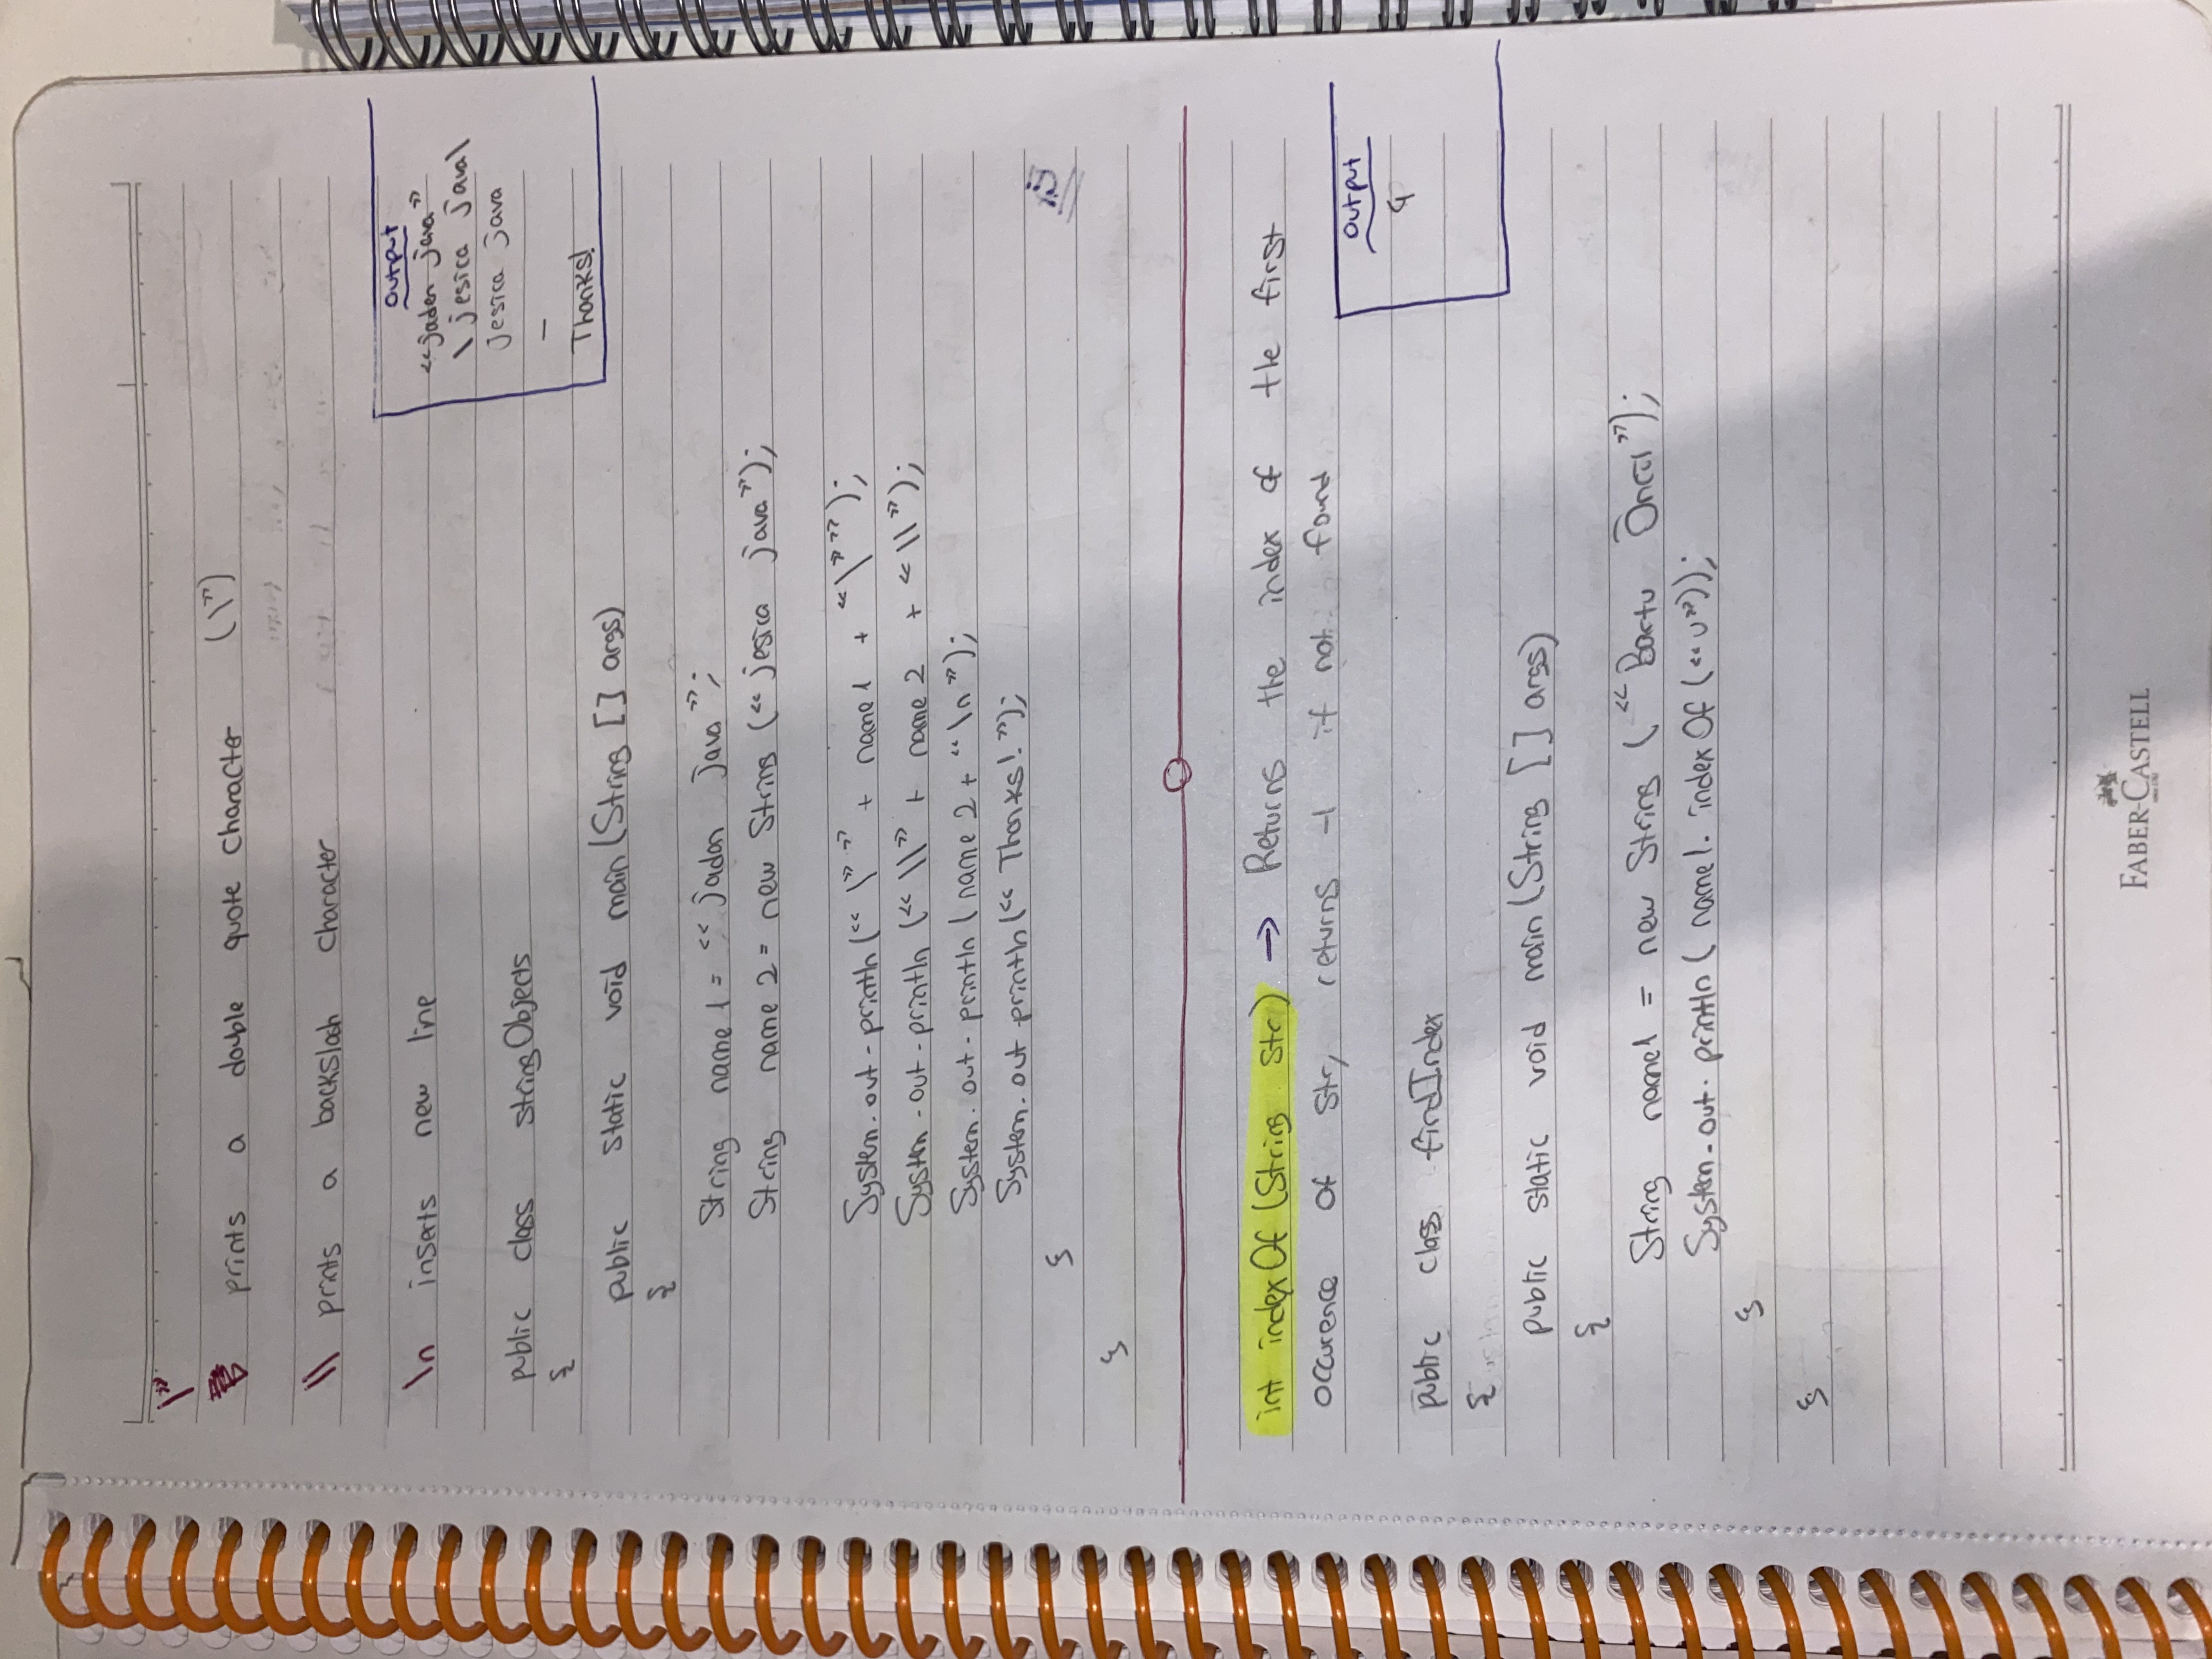 \”
prints a double quote character (\”)
\\ prints a backslash character
\n inserts new line
Output
“jaden java”
\jesica java\
jesica java
–
Thanks!
public class stringObjects
{
public static void main(String [] args)
{
String name1 = “jaden java”;
String name2 = new String (“jesica java”);
System.out.println(“\”” + name1 + “\””);
System.out.println (“\\” + name2 + “\\”);
System.out.println (name2 + “\n”);
System.out.println(“Thanks!”);
}
}
int indexOf (String str) → Returns the index of the first
occurence of str, returns -1 if not found
Output
4
public class findIndex
{
public static void main(String [] args)
{
String name1 = new String (“Bartu Öncel”);
System.out.println( name1.indexOf(“u”));
}
}
FABER-CASTELL
since 1761